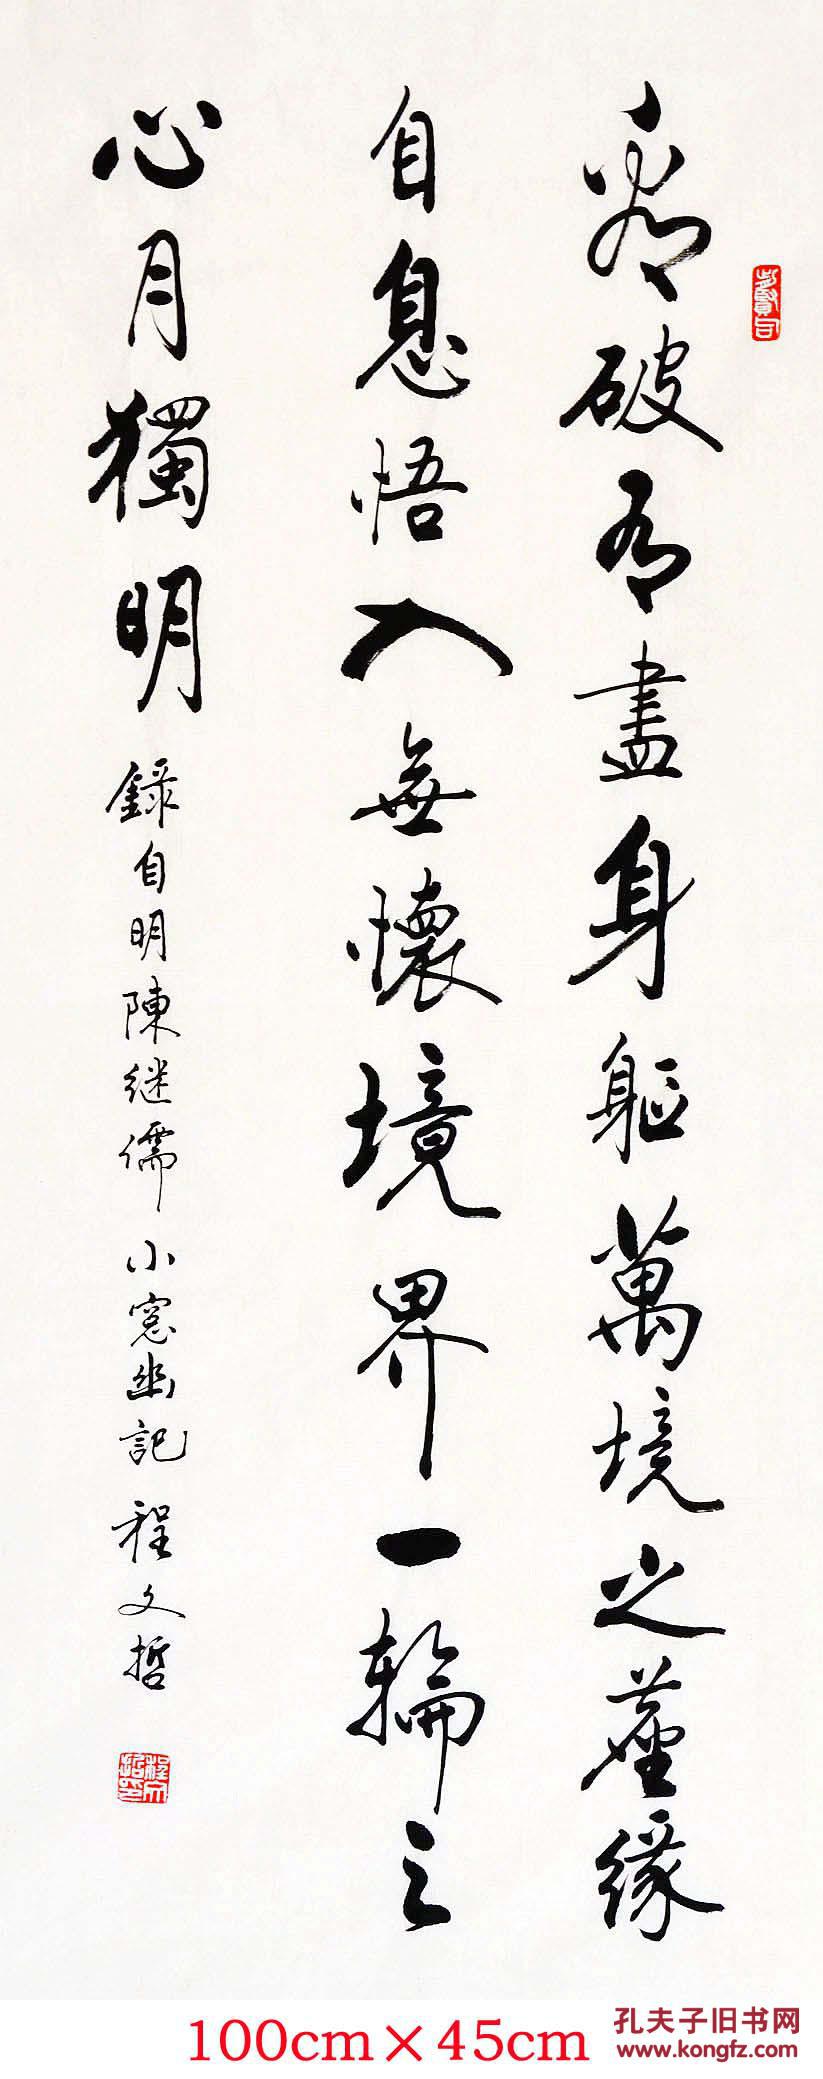 看破有盡身軀萬境之塵緣
自息悟入無懷境界一輪之
心月獨明
錄自明陳继儒小窓幽記 程文哲
100cm×45cm
孔夫子旧书网
www.kongfz.com